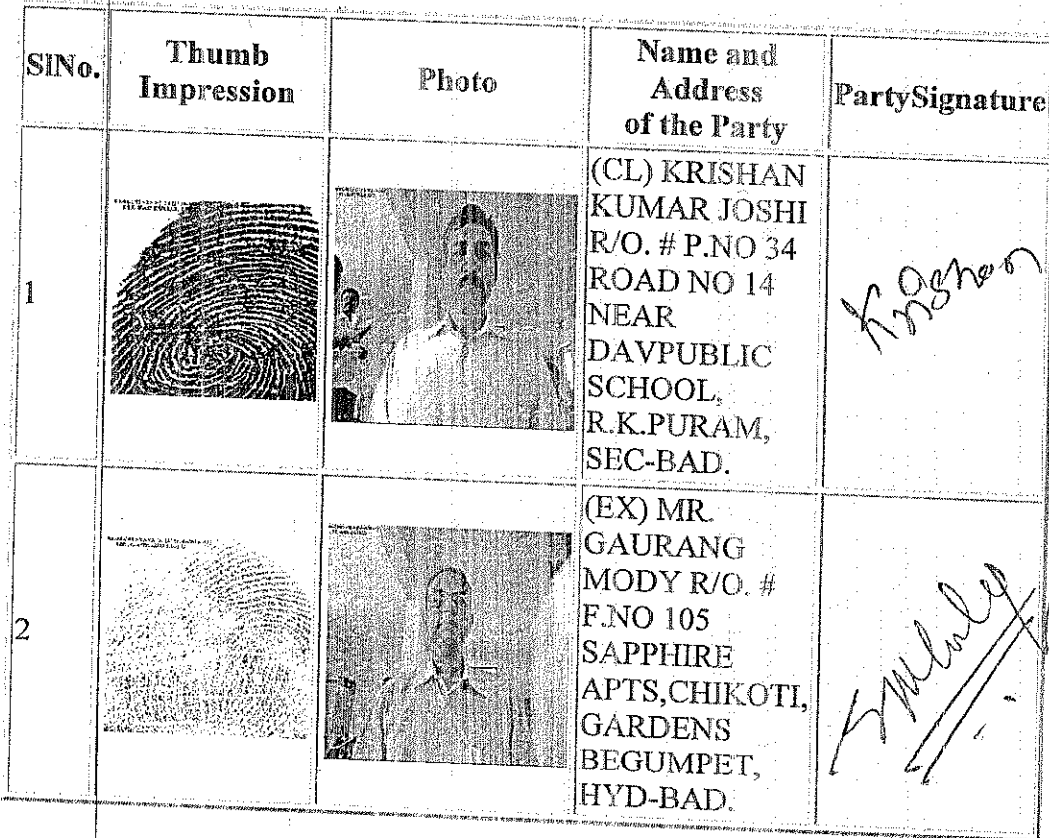 SlNo.
Thumb
Impression
Photo
Name and
Address
of the Party
PartySignature
1
(CL) KRISHAN
KUMAR JOSHI
R/O. # P.NO 34
ROAD NO 14
NEAR
DAVPUBLIC
SCHOOL,
R.K.PURAM,
SEC-BAD.
Krishan
2
(EX) MR.
GAURANG
MODY R/O. #
F.NO 105
SAPPHIRE
APTS,CHIKOTI,
GARDENS
BEGUMPET,
HYD-BAD.